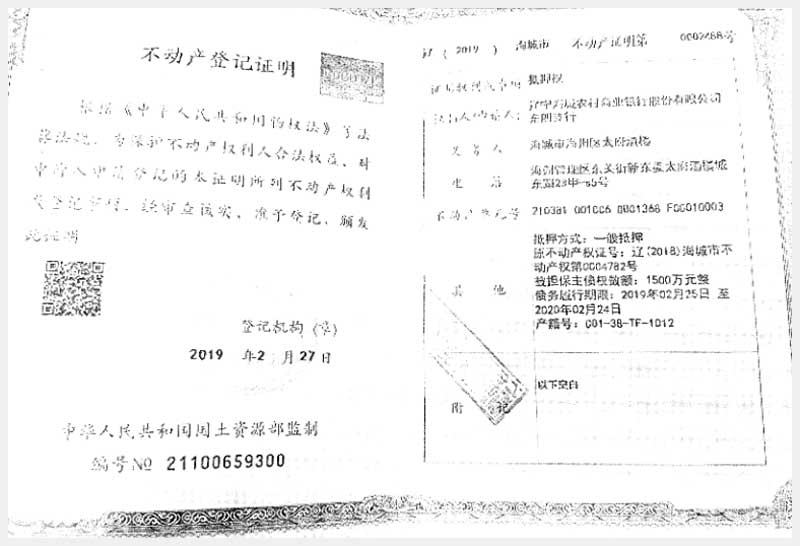 不动产登记证明
根据《中华人民共和国物权法》等法
律法规，为保护不动产权利人合法权益，对
申请人申请登记的本证明所列不动产权利
及登记事项，经审查核实，准予登记，颁发
此证明
登记机构（章）
2019 年2 月27日
中华人民共和国国土资源部监制
编号№ 21100659300
辽（2019）海城市 不动产证明第
证明权利或事项 抵押权
辽宁海城农村商业银行股份有限公司
东四支行
义务人
坐落
不动产单元号 210381 001006 F00010003
其他
抵押方式：一般抵押
原不动产权证号：辽(2018)海城市不
动产权第0004782号
被担保主债权数额：1500万元整
债务履行期限：2019年02月25日 至
2020年02月24日
产籍号：001-38-TF-1012
附记
以下空白